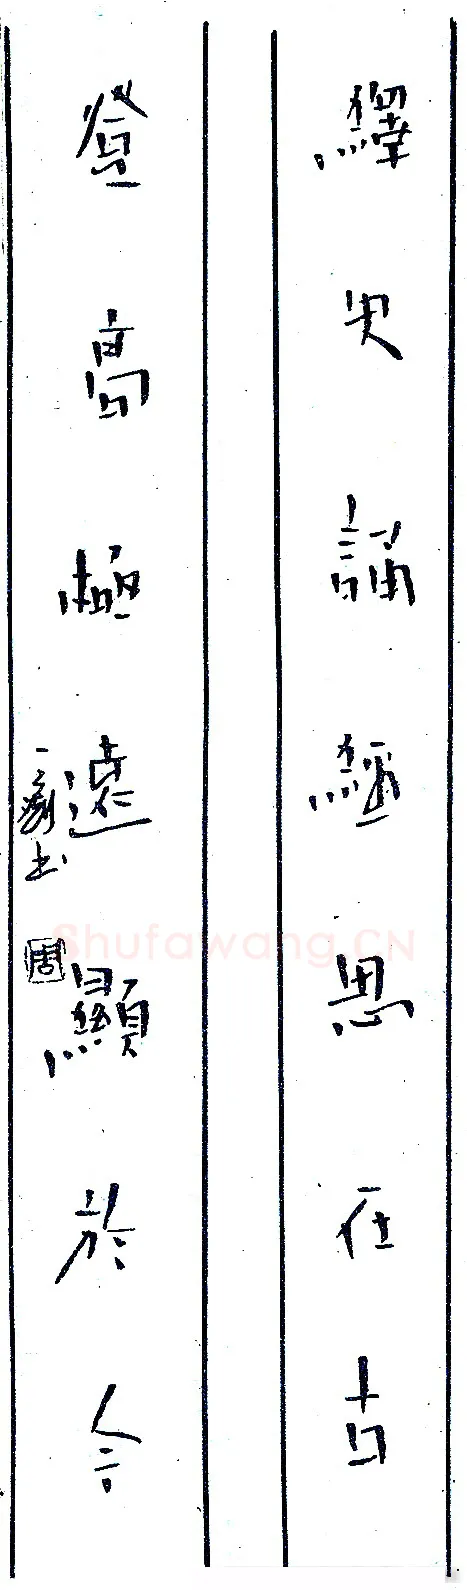 繹史誦經思在古
登高極遠顯於今
書
周
Shufawang.CN